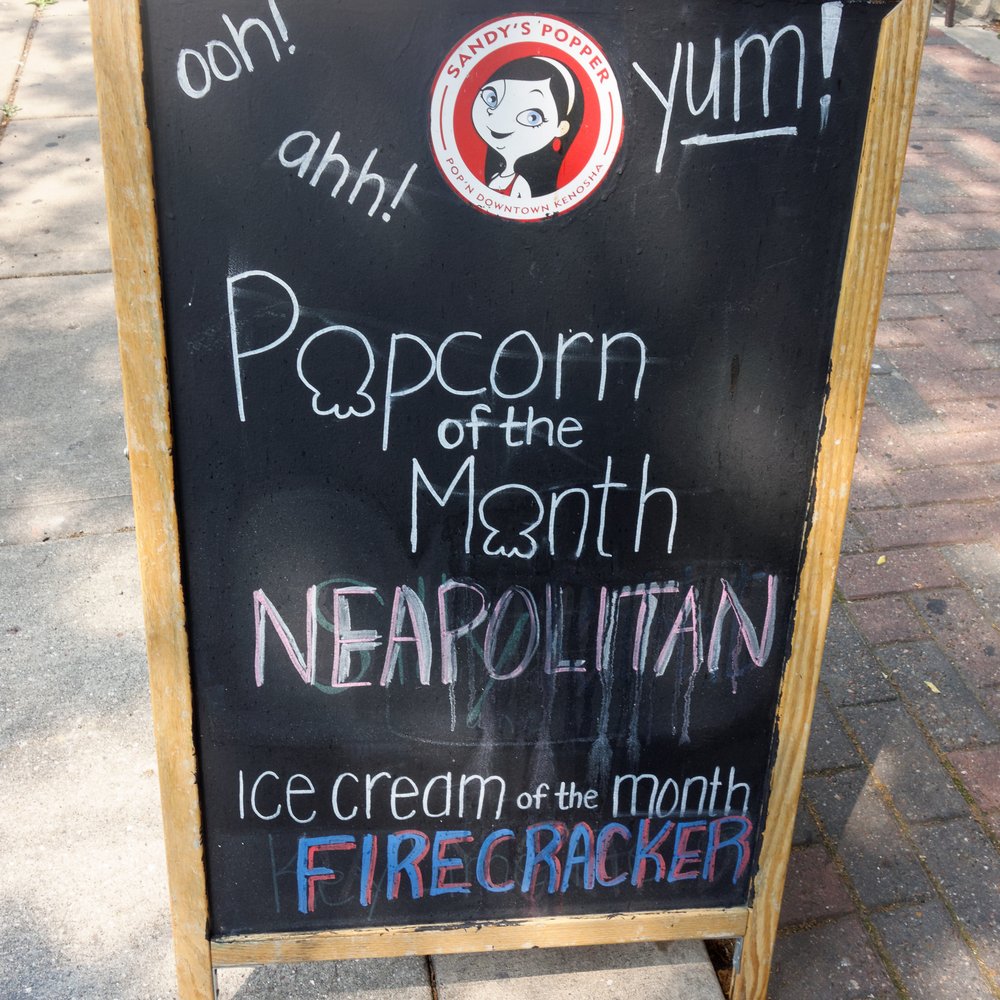 ooh!
ahh!
SANDY'S POPPER
POP'N DOWNTOWN KENOSHA
yum!
Popcorn
of the
Month
NEAPOLITAN
Ice cream of the month
FIRECRACKER